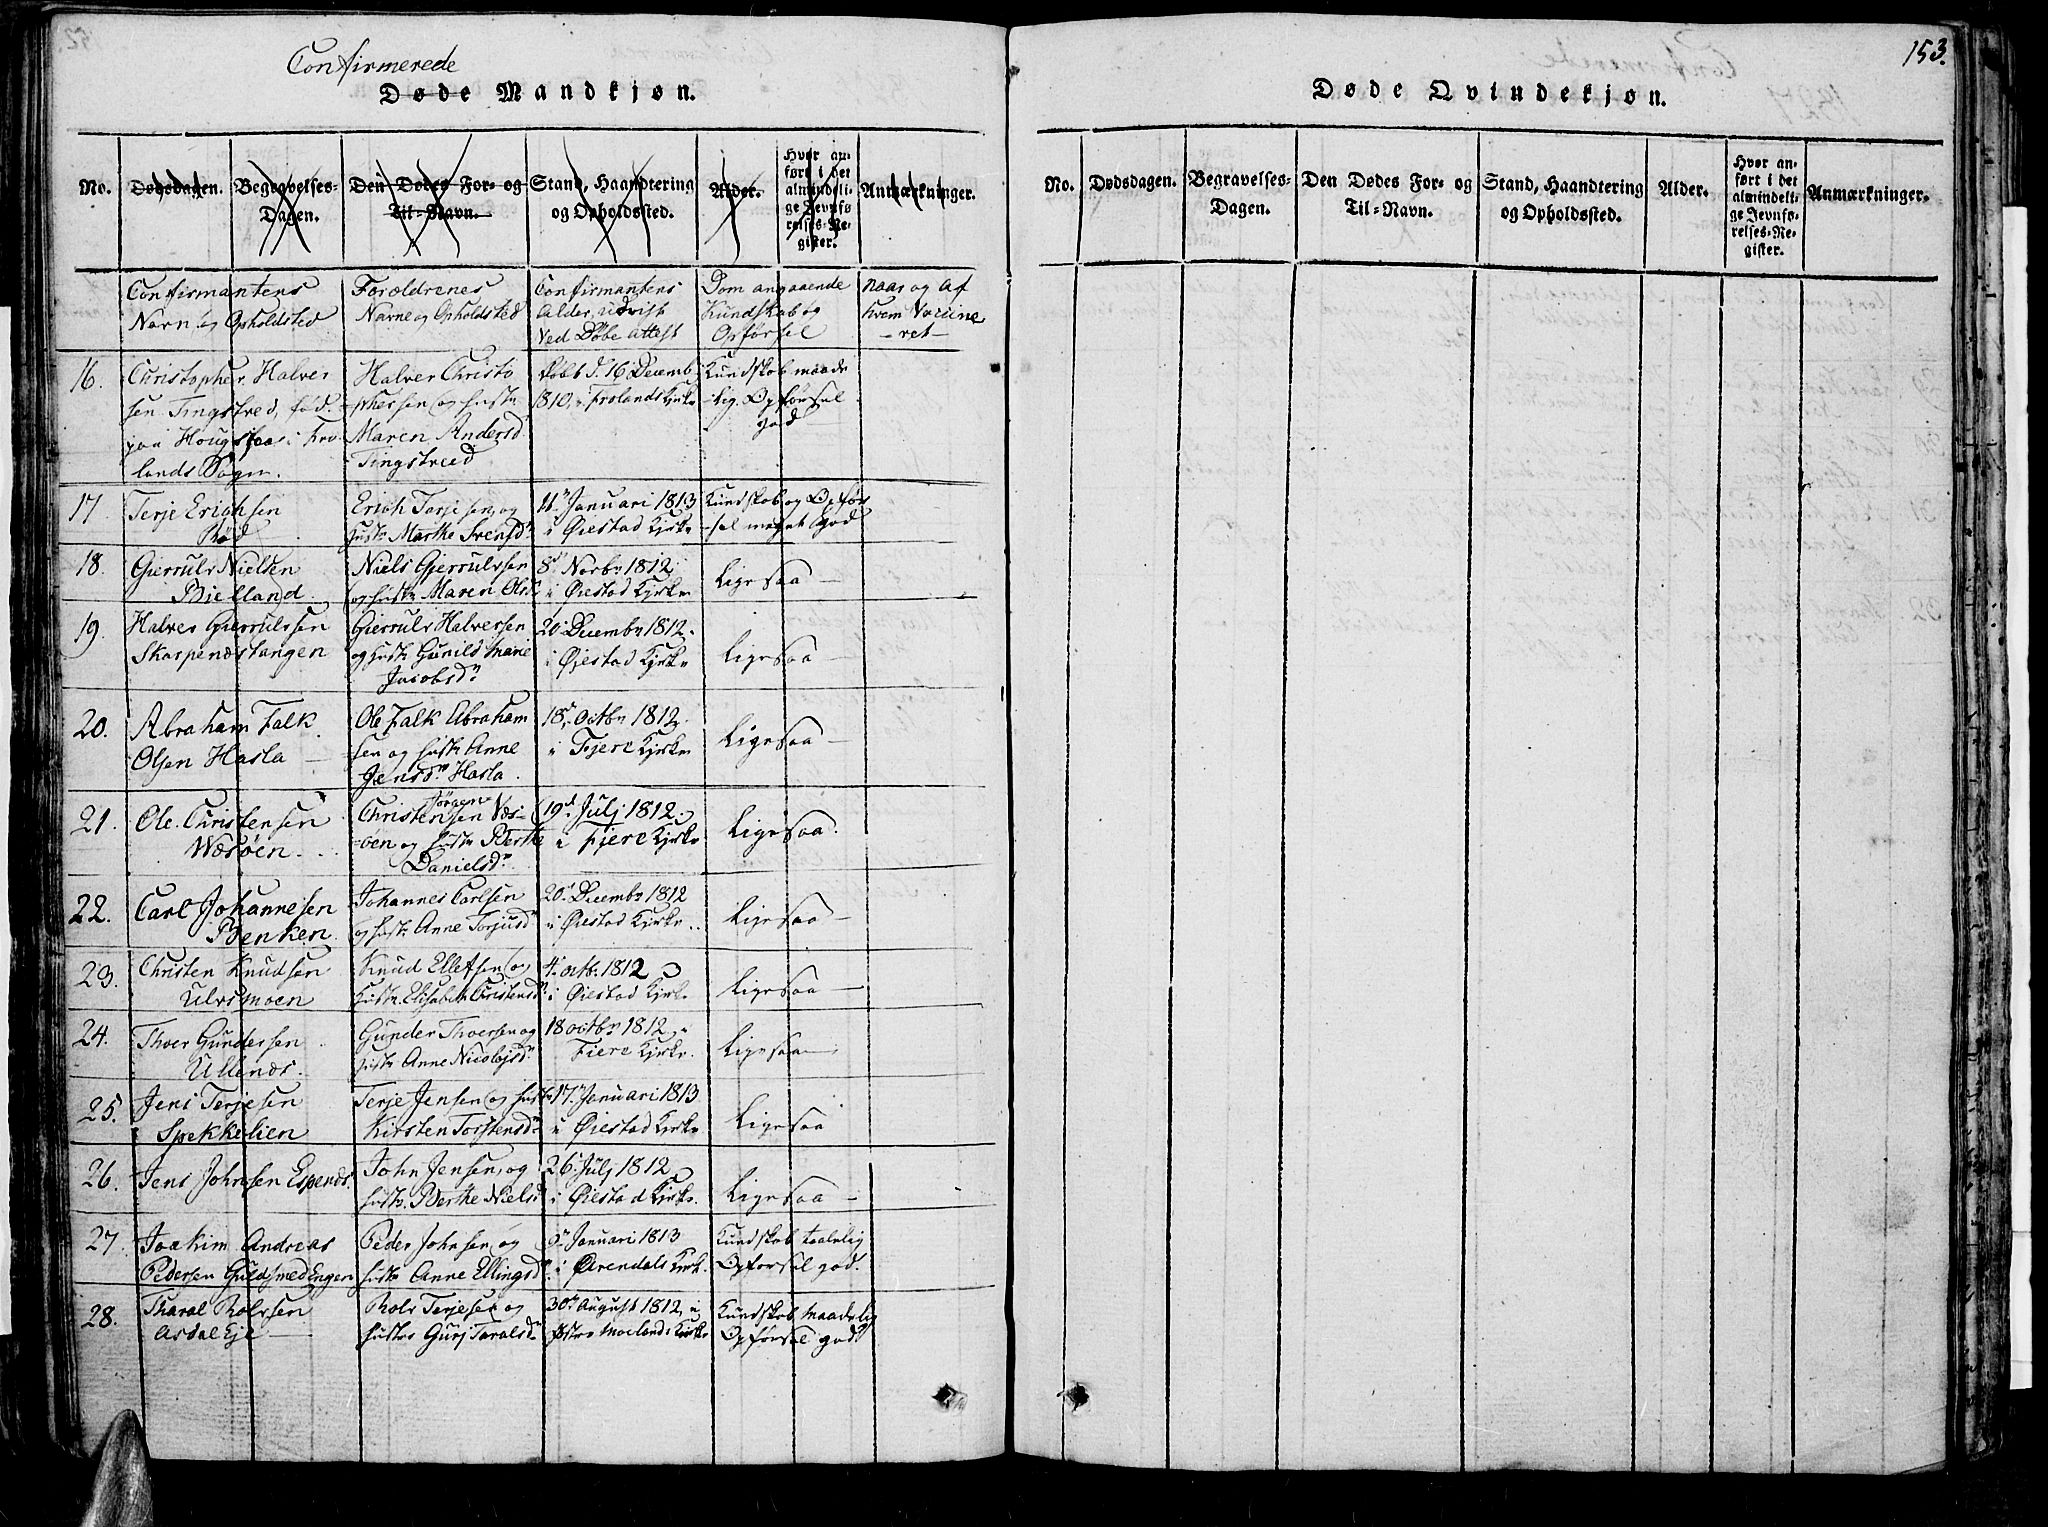 Confirmerede
Døde Mandkjøn.
No.
Dødsdagen.
Begravelses-
Dagen.
Den Dødes For- og
Til-Navn.
Stand, Haandtering
og Opholdssted.
Alder.
Hvor an-
ført i det
almindeli-
ge Jevnfø-
relses-Re-
gister.
Anmærkninger.
Confirmantens
Navn og Opholdsted
Forældrenes
Navne og Opholdsted
Confirmantens
Alder, udvist
ved Døbe attest
Dom angaaende
Kundskab og
Opførsel
Naar og af
hvem Vaccine
-ret-
16.
Christopher Halver
sen Tingstved, fød
paa i Fro
lands Sogn.
Halver Christo
phersen og hustr
Maren Andersd
Tingstveed
døbt d. 16 Decemb
1810, i Frolands Kirke
Kundskab maade
-lig. Opførsel
god
17.
Terje Erichsen
Rød
Erich Terjesen, og
hustr Marthe Svensdr
11 Januari 1813
i Øiestad Kirke
Kundskab og Opfør
-sel meget god
18
Gierrulv Nielsen
Bielland
Niels Gjerrulvsen
og hustr Maren Olsd
8d Novbr 1812
i Øiestad Kirke
Ligesaa
19.
Halver Gierrulvsen
Skarpenæstangen
Gierrulv Halversen
og hustr Gunild Marie
Jacobsdr
20 Decembr 1812.
i Øjestad Kirke
Ligesaa
20.
Abraham Falk
Olsen Hasla
Ole Falk Abraham
sen og hustr Anne
Jensdr Hasla
18 octbr 1812
i Fjere Kirke
Ligesaa
21.
Ole Christensen
Wæröen
Jörgen
Christensen Vær-
-öen og hustr Berthe
Danielsdr
19d Julj 1812
i Fjere Kirke
Ligesaa.
22.
Carl Johannesen
Benken
Johannes Carlsen
og hustr Anne Torjusdr
20 Decembr 1812
i Øiestad Kirke
Ligesaa
23.
Christen Knudsen
Ulvsmoen
Knud Ellefsen og
hustr. Elisabeth Christensdr
4 octb. 1812
i Øiestad Kirke
Ligesaa
24.
Thoer Gundersen
Ullenæs.
Gunder Thoersen og
hustr Anne Nicolajsdr
18 octbr 1812, i
Fiere Kirke.
Ligesaa
25.
Jens Terjesen
Spekkelien
Terje Jensen og hustr
Kirsten Torstensdr
17 Januari 1813
i Øiestad Kirke
Ligesaa
26.
Jens Johnsen Espenæs.
John Jensen, og
hustr. Berthe Nielsd
26 Julj 1812
i Øiestad Kirke.
Ligesaa
27
Joakim Andreas
Pedersen Guldsmedengen
Peder Johnsen og
hustr Anne Ellingsdr
Januari 1813
i Arendals Kirk.
Kundskab taalelig
Opførsel god.
28.
Tharal Rolvsen
Asdal Eje
Rolv Terjesen og
hustro Gurj Taralsdr
30 August 1812, i
Østre Moelands Kirke
Kundskab Maadelig
Opførsel god
153.
Døde Qvindekjøn.
No.
Dødsdagen.
Begravelses-
Dagen.
Den Dødes For- og
Til-Navn.
Stand, Haandtering
og Opholdssted.
Alder.
Hvor an-
ført i det
almindeli-
ge Jevnfø-
relses-Re-
gister.
Anmærkninger.